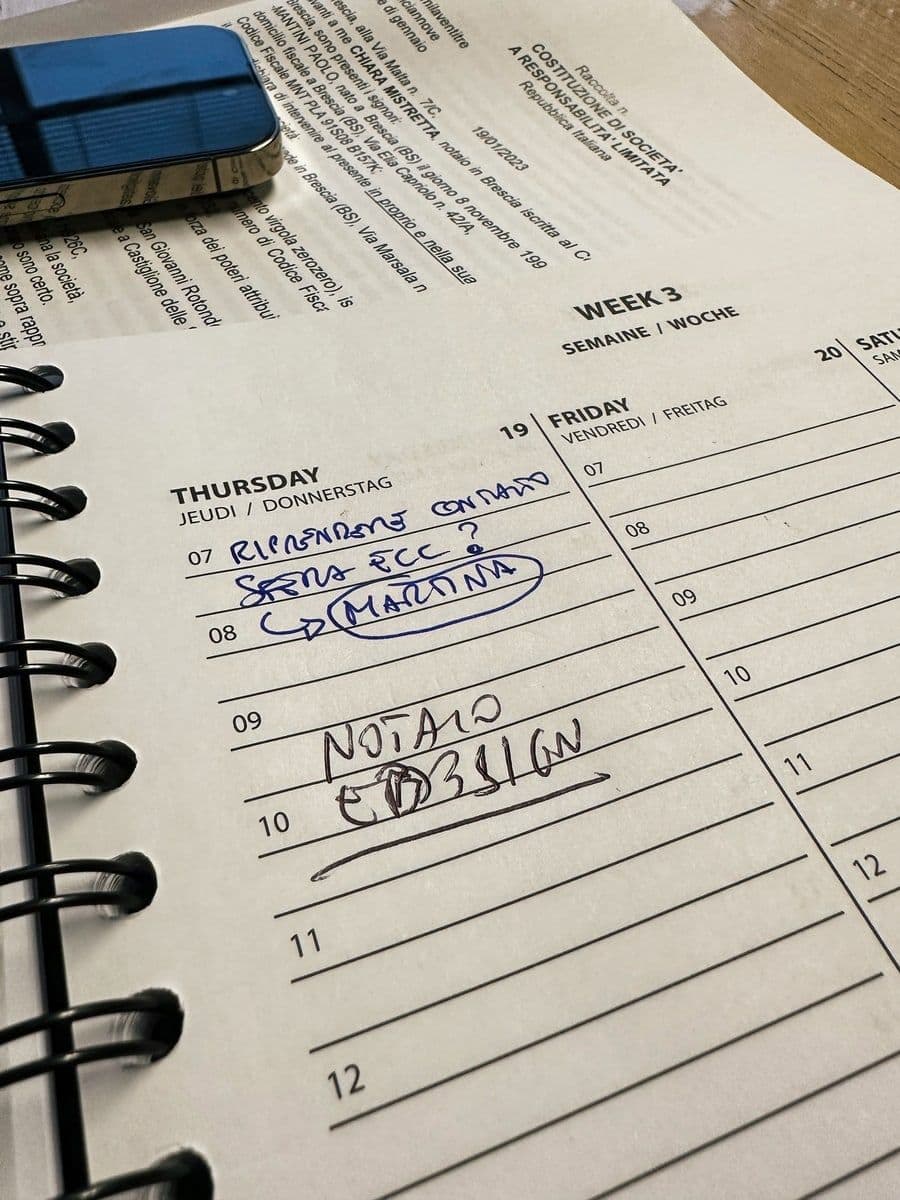 Raccolta n.
COSTITUZIONE DI SOCIETA'
A RESPONSABILITA' LIMITATA
Repubblica Italiana
19/01/2023
e di gennaio
escia, alla Via Malla n. 7/C,
vanti a me CHIARA MISTRETTA, notaio in Brescia iscritta al C
Brescia, sono presenti i signori:
-MANTINI PAOLO, nato a Brescia (BS) il giorno 8 novembre 199
domicilio fiscale a Brescia (BS), Via Elia Capriolo n. 42/A,
Codice Fiscale MNT PLA 91S08 B157K;
di intervenire al presente in proprio e nella sua
de in Brescia (BS), Via Marsala n
nto virgola zerozero), is
umero di Codice Fisca
orza dei poteri attribui
San Giovanni Rotond
e a Castiglione delle
26C,
na la società,
o sono certo.
ome sopra rappr
WEEK 3
SEMAINE / WOCHE
THURSDAY 19
JEUDI / DONNERSTAG
07 RIPRENDERE CONTATTO
ECC ?
08 MARTINA
09
NOTAIO
10
11
12
FRIDAY 20
VENDREDI / FREITAG
07
08
09
10
11
12
SATU
SAM